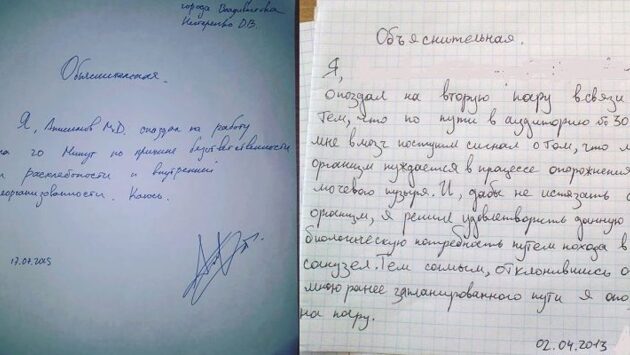 города Владивостока
Нестеренко Д.В.
Объяснительная.
Я, М.Д. опоздал на работу
на 20 минут по причине безответственности
и расхлебаности и внутренней
неорганизованности. Каюсь.
17.07.2015
Объяснительная.
Я,
опоздал на вторую пару в связи
тем, что по пути в аудиторию № 30
мне в мозг поступил сигнал о том, что м
организм нуждается в процессе опорожнения
мочевого пузыря. И, дабы не истязать с
организм, я решил удовлетворить данную
биологическую потребность путем похода в
санузел. Тем самым, отклонившись о
мною ранее запланированного пути я опо
на пару.
02.04.2013